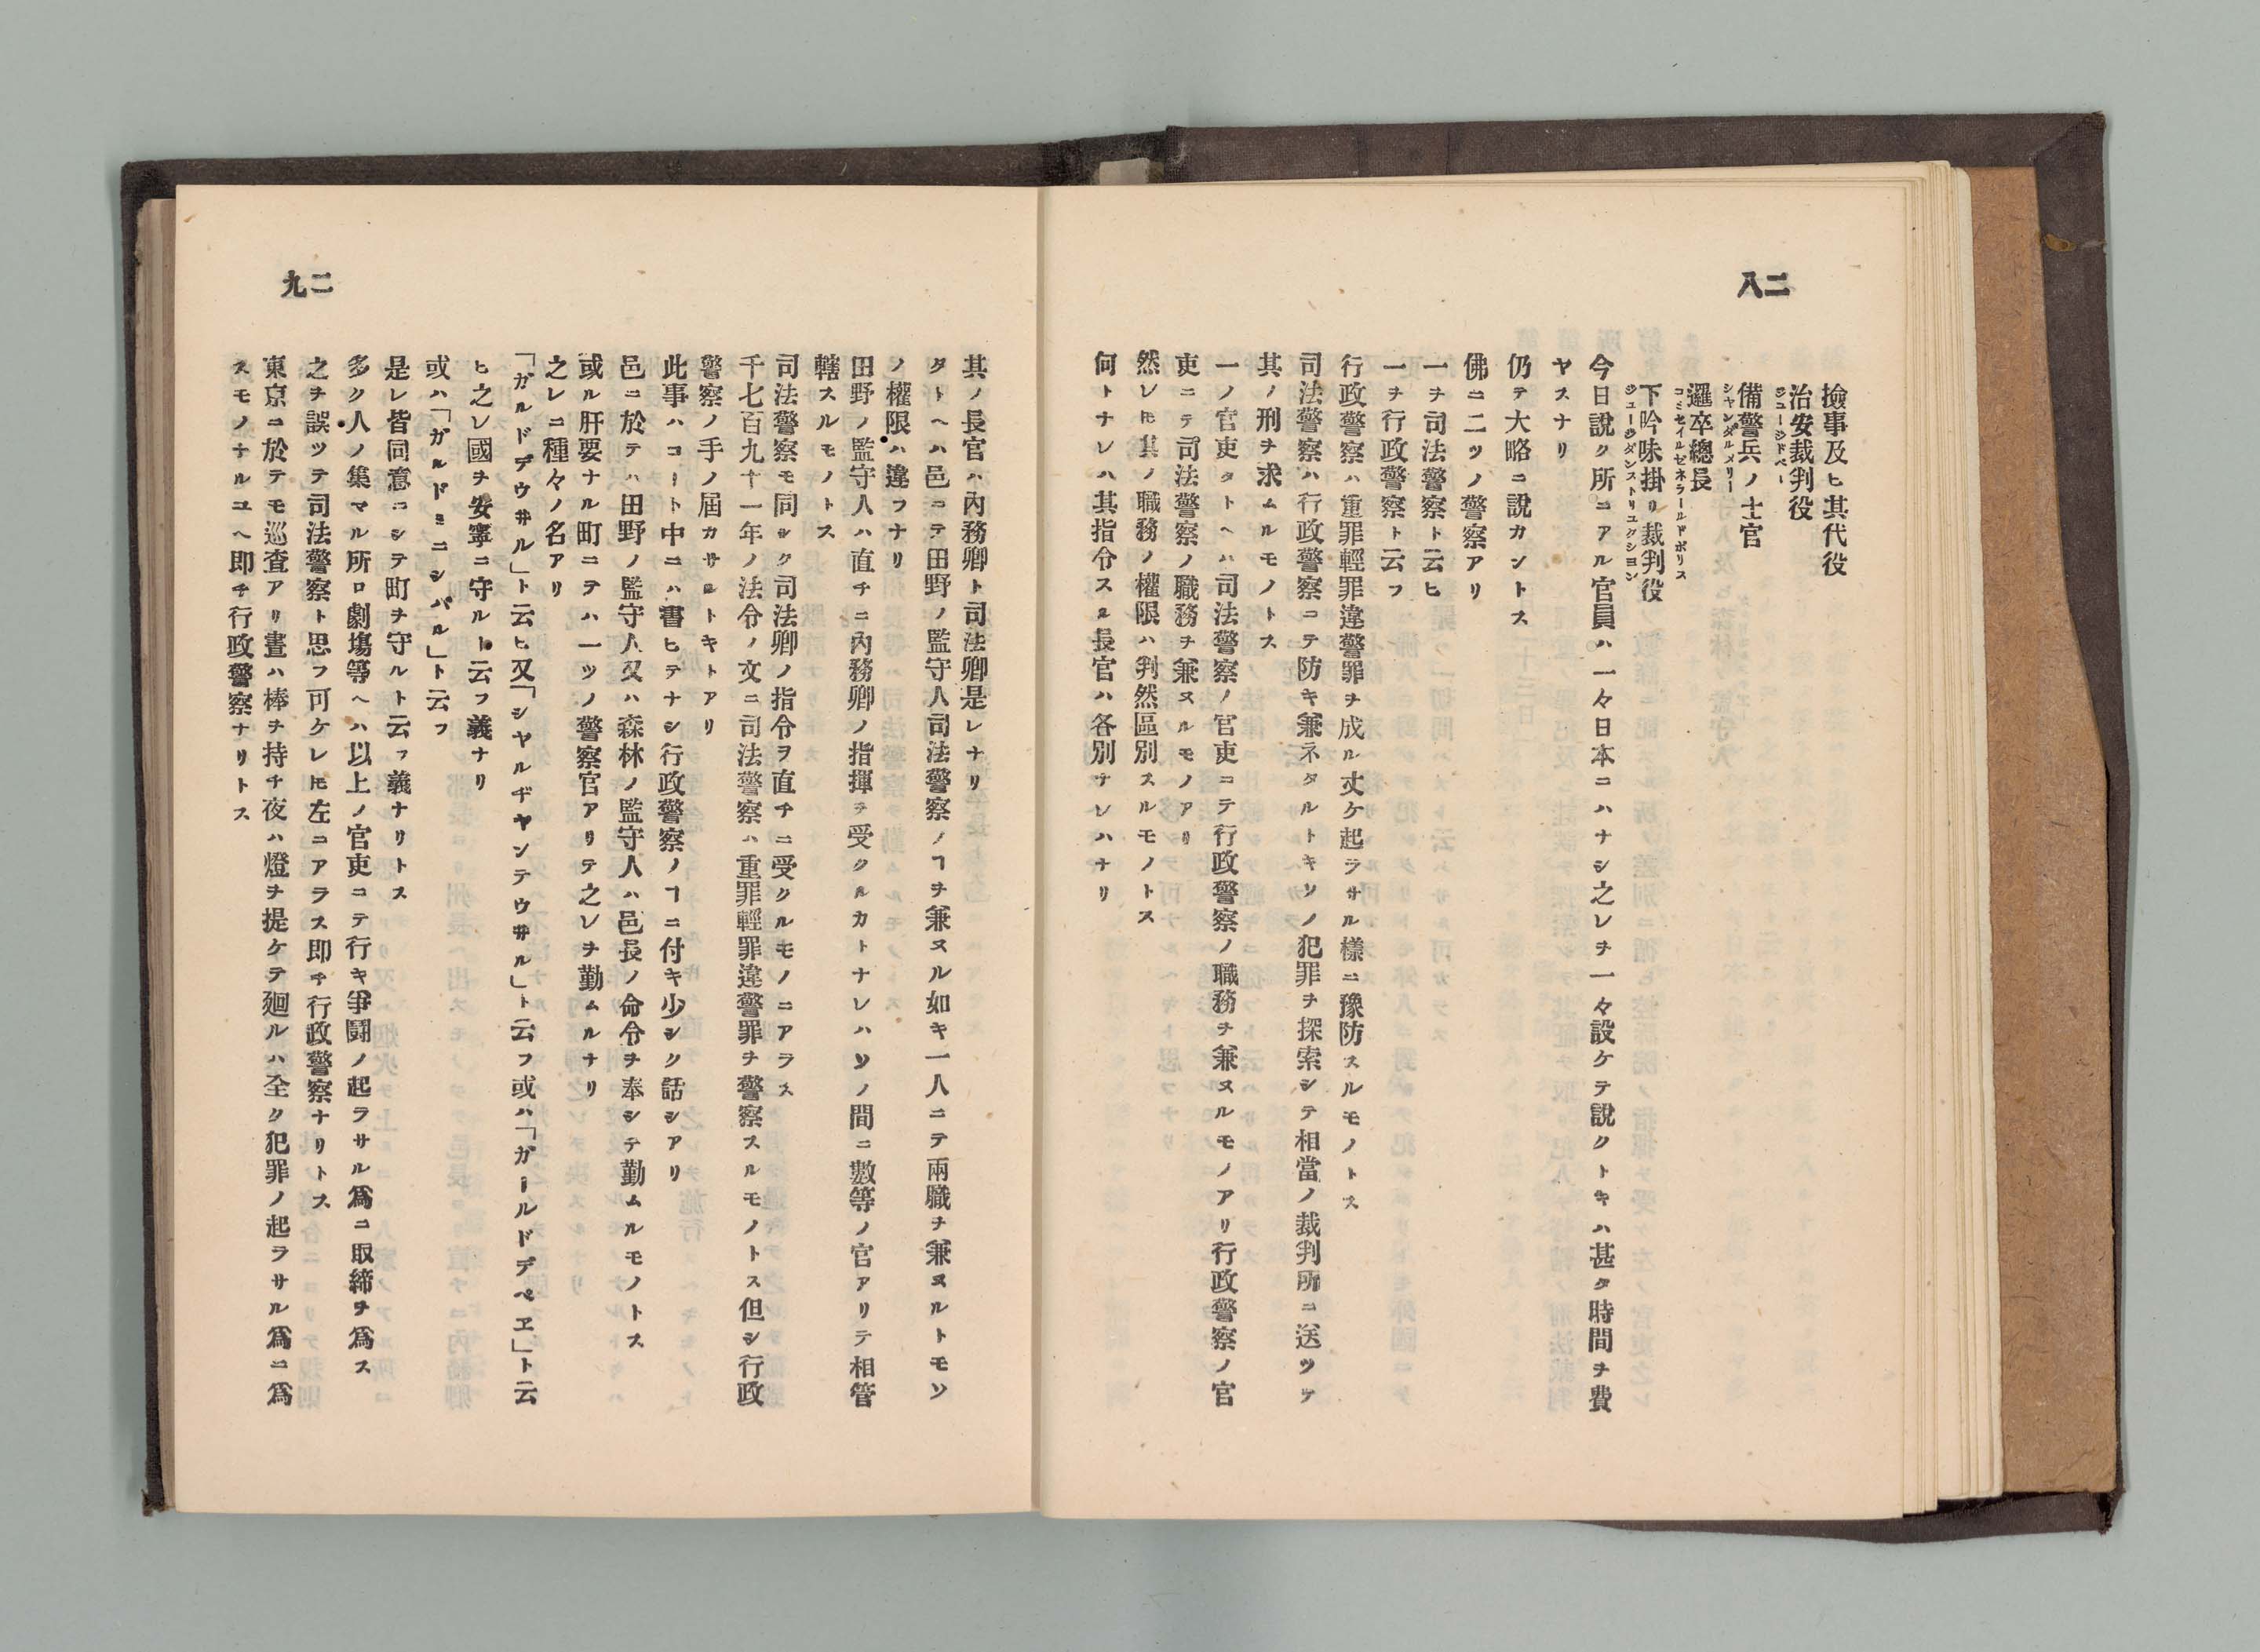 二八
撿事及ヒ其代役
治安裁判役
ジユージドペー
備警兵ノ士官
シヤンダルメリー
邏卒總長
コミセイルゼネラールドポリス
下吟味掛リ裁判役
ジユージダンストリユクシヨン
今日説ク所ニアル官員ハ一々日本ニハナシ之レヲ一々設ケテ説クトキハ甚タ時間ヲ費
ヤスナリ
仍テ大略ニ説カントス
佛ニ二ツノ警察アリ
一ヲ司法警察ト云ヒ
一ヲ行政警察ト云フ
行政警察ハ重罪輕罪違警罪ヲ成ル丈ケ起ラサル樣ニ豫防スルモノトス
司法警察ハ行政警察ニテ防キ兼ネタルトキソノ犯罪ヲ探索シテ相當ノ裁判所ニ送ツテ
其ノ刑ヲ求ムルモノトス
一ノ官吏タトヘハ司法警察ノ官吏ニテ行政警察ノ職務ヲ兼ヌルモノアリ行政警察ノ官
吏ニテ司法警察ノ職務ヲ兼ヌルモノアリ
然レ𪜈其ノ職務ノ權限ハ判然區別スルモノトス
何トナレハ其指令スル長官ハ各別ナレハナリ
二九
其ノ長官ハ內務卿ト司法卿是レナリ
タトヘハ邑ニテ田野ノ監守人司法警察ノヿヲ兼ヌル如キ一人ニテ兩職ヲ兼ヌルトモソ
ノ權限ハ違フナリ
田野ノ監守人ハ直チニ內務卿ノ指揮ヲ受クルカトナレハソノ間ニ數等ノ官アリテ相管
轄スルモノトス
司法警察モ同シク司法卿ノ指令ヲ直チニ受クルモノニアラス
千七百九十一年ノ法令ノ文ニ司法警察ハ重罪輕罪違警罪ヲ警察スルモノトス但シ行政
警察ノ手ノ屆カサルトキトアリ
此事ハコート中ニハ書ヒテナシ行政警察ノヿニ付キ少シク話シアリ
邑ニ於テハ田野ノ監守人又ハ森林ノ監守人ハ邑長ノ命令ヲ奉シテ勤ムルモノトス
或ル肝要ナル町ニテハ一ツノ警察官アリテ之レヲ勤ムルナリ
之レニ種々ノ名アリ
「ガルドデウヰル」ト云ヒ又「シヤルヂヤンテウヰル」ト云フ或ハ「ガールドデペエ」ト云
ヒ之レ國ヲ安寧ニ守ルト云フ義ナリ
或ハ「ガルドミニシパル」ト云フ
是レ皆同意ニシテ町ヲ守ルト云フ義ナリトス
多ク人ノ集マル所ロ劇塲等ヘハ以上ノ官吏ニテ行キ爭鬪ノ起ラサル爲ニ取締ヲ爲ス
之ヲ誤ツテ司法警察ト思フ可ケレ𪜈左ニアラス即チ行政警察ナリトス
東京ニ於テモ巡査アリ晝ハ棒ヲ持チ夜ハ燈ヲ提ケテ廻ルハ全ク犯罪ノ起ラサル爲ニ爲
スモノナルユヘ即チ行政警察ナリトス